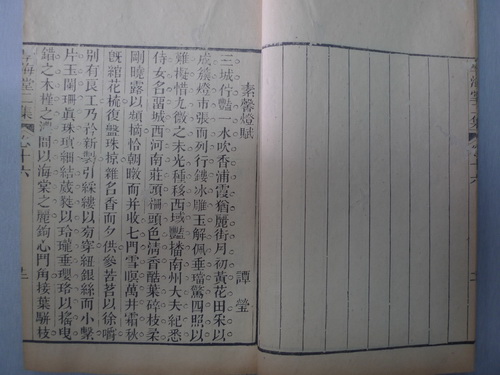 素馨燈賦
譚瑩
三城佇豔一水吹香浦霞猶麗街月初黃花田采以
成燈市張而列行鏤冰雕玉解佩垂璫驚四照以
難擬惜九微之末光種移西域豔播南州大夫紀悉
侍女名畱城西河南莊頭溜頭色清香酷葉碎枝柔
剛曉露以摘恰朝暾而并收七門雪暝萬井霜秋
旣綰花梳復盤珠掠雜名香而夕供參若茗以徐嚼
別有良工乃矜新製引綵縷以旁穿紐銀絲而小繫
片玉闌珊眞珠瑣細結葳蕤以玲瓏垂瓔珞以搖曳
錯之木槿之間以海棠之麗鉤心鬥角接葉駢枝
海堂二集 卷十六